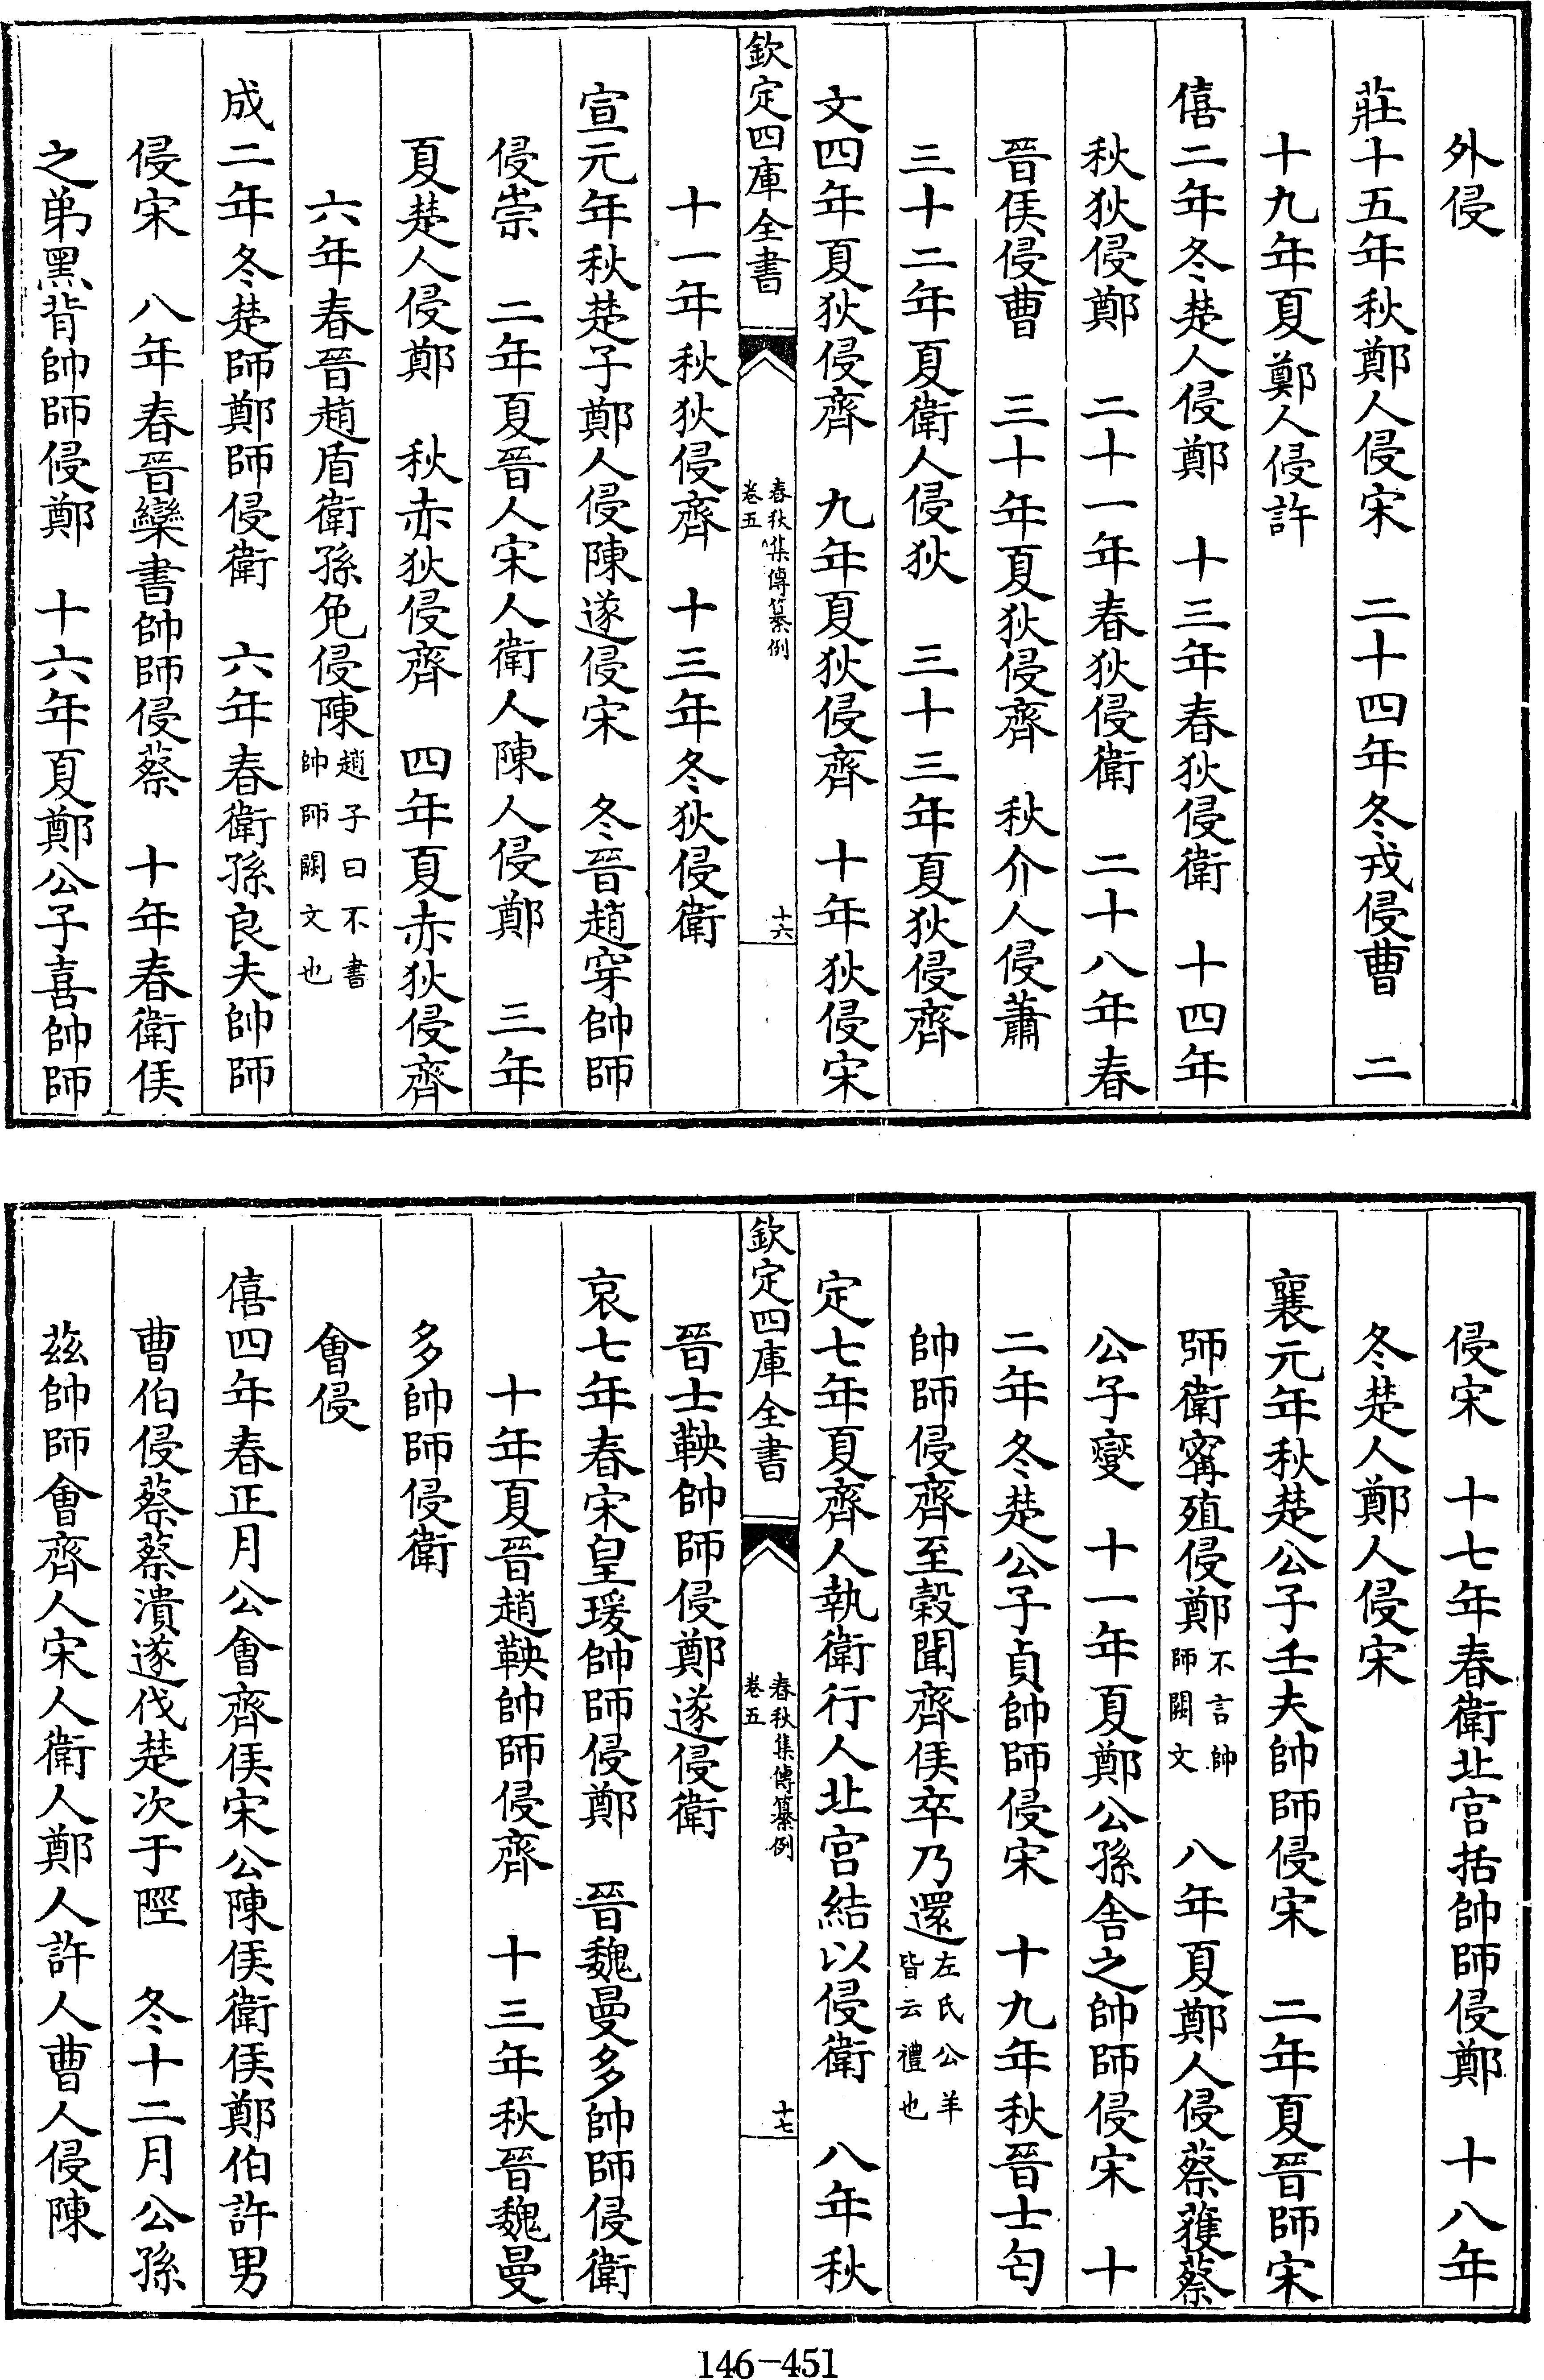 外侵
莊十五年秋鄭人侵宋　二十四年冬戎侵曹　二
十九年夏鄭人侵許
僖二年冬楚人侵鄭　十三年春狄侵衛　十四年
秋狄侵鄭　二十一年春狄侵衛　二十八年春
晉侯侵曹　三十年夏狄侵齊　秋介人侵蕭
三十二年夏衛人侵狄　三十三年夏狄侵齊
文四年夏狄侵齊　九年夏狄侵齊　十年狄侵宋
欽定四庫全書　春秋集傳纂例
卷五　十六
十一年秋狄侵齊　十三年冬狄侵衛
宣元年秋楚子鄭人侵陳遂侵宋　冬晉趙穿帥師
侵崇　二年夏晉人宋人衛人陳人侵鄭　三年
夏楚人侵鄭　秋赤狄侵齊　四年夏赤狄侵齊
六年春晉趙盾衛孫免侵陳趙子曰不書
帥師闕文也
成二年冬楚師鄭師侵衛　六年春衛孫良夫帥師
侵宋　八年春晉欒書帥師侵蔡　十年春衛侯
之弟黑背帥師侵鄭　十六年夏鄭公子喜帥師
侵宋　十七年春衛北宮括帥師侵鄭　十八年
冬楚人鄭人侵宋
襄元年秋楚公子壬夫帥師侵宋　二年夏晉師宋
師衛甯殖侵鄭不言帥
師闕文　八年夏鄭人侵蔡獲蔡
公子燮　十一年夏鄭公孫舍之帥師侵宋　十
二年冬楚公子貞帥師侵宋　十九年秋晉士匄
帥師侵齊至穀聞齊侯卒乃還左氏公羊
皆云禮也
定七年夏齊人執衛行人北宮結以侵衛　八年秋
欽定四庫全書　春秋集傳纂例
卷五　十七
晉士鞅帥師侵鄭遂侵衛
哀七年春宋皇瑗帥師侵鄭　晉魏曼多帥師侵衛
十年夏晉趙鞅帥師侵齊　十三年秋晉魏曼
多帥師侵衛
會侵
僖四年春正月公會齊侯宋公陳侯衛侯鄭伯許男
曹伯侵蔡蔡潰遂伐楚次于陘　冬十二月公孫
茲帥師會齊人宋人衛人鄭人許人曹人侵陳
146-451